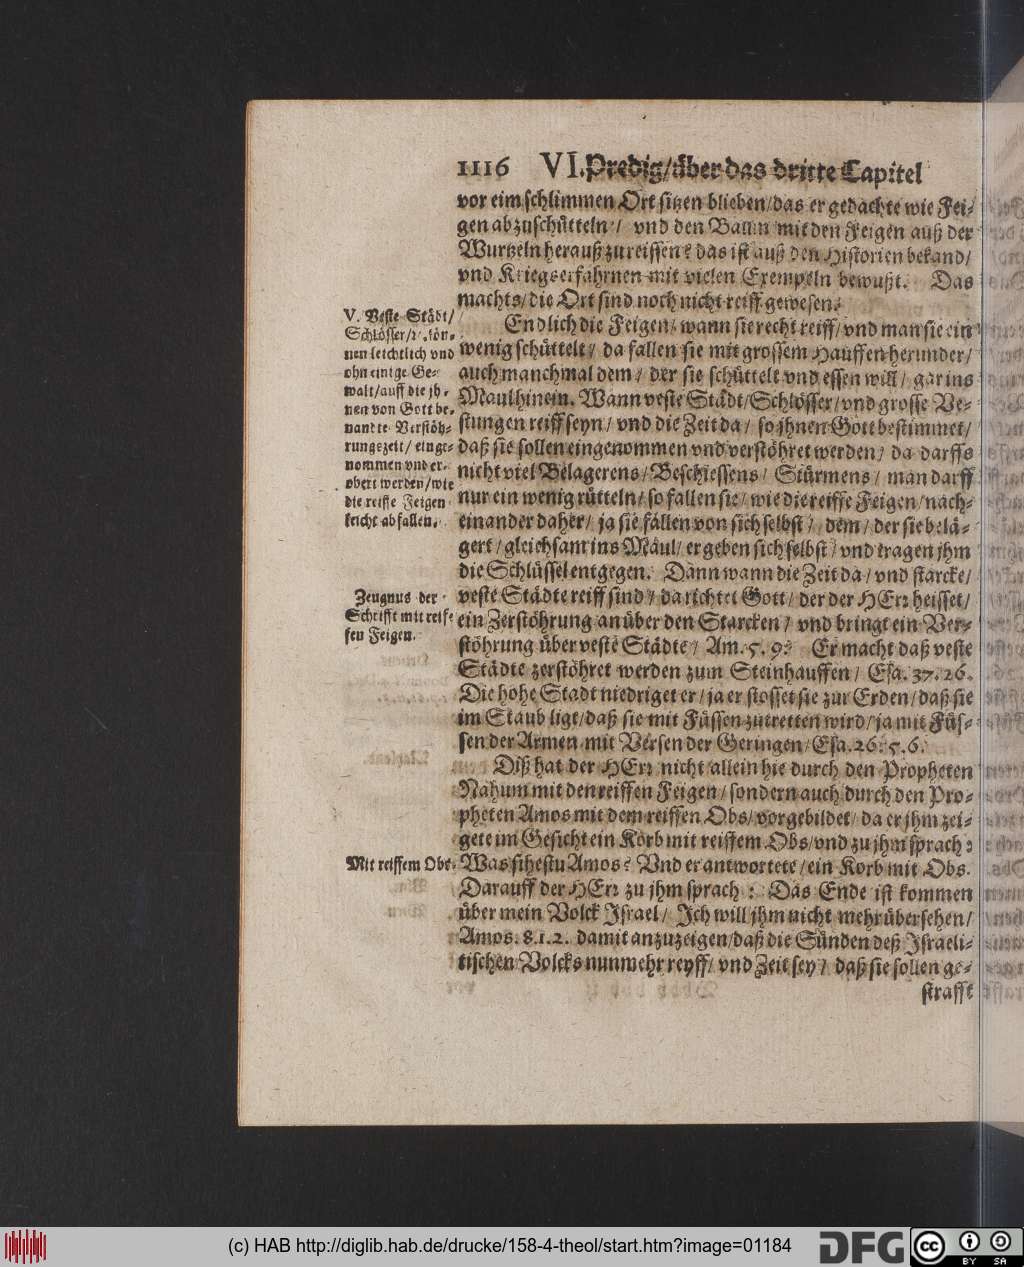 1116 VI. Predig/über das dritte Capitel
vor eim schlimmen Ort sitzen blieben/das er gedachte wie Fei-
gen abzuschütteln/ vnd den Baum mit den Feigen auß der
Wurtzeln herauß zu reissen? das ist auß den Historien bekand/
vnd Kriegserfahrnen mit vielen Exempeln bewußt. Das
machts/die Ort sind noch nicht reiff gewesen.
Endlich die Feigen/wann sie recht reiff/vnd man sie ein
wenig schüttelt/ da fallen sie mit grossem Hauffen herunder/
auch manchmal dem/ der sie schüttelt vnd essen will/ gar ins
Maul hinein. Wann veste Städt/Schlösser/vnd grosse Ve-
stungen reiff seyn/ vnd die Zeit da/ so jhnen Gott bestimmet/
daß sie sollen eingenommen vnd verstöhret werden/ da darffs
nicht viel Belagerens/Beschiessens/ Stürmens/ man darff
nur ein wenig rütteln/so fallen sie/wie die reiffe Feigen/nach-
einander daher/ ja sie fallen von sich selbst/ dem/ der sie belä-
gert/gleichsam ins Maul/ergeben sich selbst/vnd tragen jhm
die Schlüssel entgegen. Dann wann die Zeit da/vnd starcke/
veste Städte reiff sind/ da richtet Gott/der der HErr heisset/
ein Zerstöhrung an über den Starcken/ vnd bringt ein Ver-
stöhrung über veste Städte/ Am. 5. 9. Er macht daß veste
Städte zerstöhret werden zum Steinhauffen/ Esa. 37. 26.
Die hohe Stadt niedriget er/ja er stosset sie zur Erden/daß sie
im Staub ligt/daß sie mit Füssen zutretten wird/ja mit Füs-
sen der Armen/mit Versen der Geringen/Esa. 26. 5. 6.
Diß hat der HErr nicht allein hie durch den Propheten
Nahum mit den reiffen Feigen/sondern auch durch den Pro-
pheten Amos mit dem reiffen Obs/vorgebildet/da er jhm zei-
gete im Gesicht ein Korb mit reiffem Obs/vnd zu jhm sprach:
Was sihestu Amos? Vnd er antwortete/ein Korb mit Obs.
Darauff der HErr zu jhm sprach: Das Ende ist kommen
über mein Volck Israel/ Ich will jhm nicht mehr übersehen/
Amos. 8. 1. 2. damit anzuzeigen/daß die Sünden deß Israeli-
tischen Volcks nunmehr reyff/vnd Zeit sey/ daß sie sollen ge-
strafft
V. Veste Städt/
Schlösser/rc. kön-
nen leichtlich vnd
ohn einige Ge-
walt/auff die jh-
nen von Gott be-
nante Verstöh-
rungszeit/ einge-
nommen vnd er-
obert werden/wie
die reiffe Feigen
leicht abfallen.
Zeugnus der
Schrifft mit reif-
fen Feigen.
Mit reiffem Obs.
(c) HAB http://diglib.hab.de/drucke/158-4-theol/start.htm?image=01184
DFG
cc BY SA